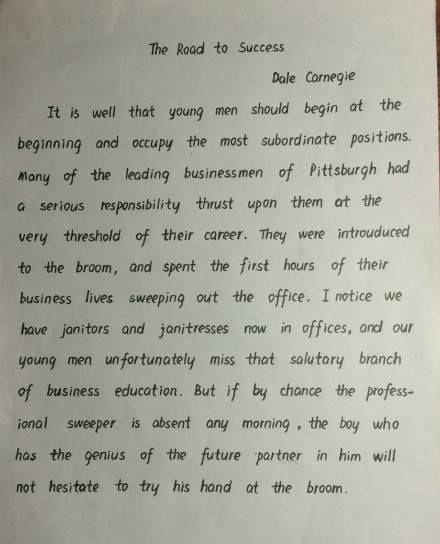 The Road to Success
Dale Carnegie
It is well that young men should begin at the
beginning and occupy the most subordinate positions.
Many of the leading businessmen of Pittsburgh had
a serious responsibility thrust upon them at the
very threshold of their career. They were introuduced
to the broom, and spent the first hours of their
business lives sweeping out the office. I notice we
have janitors and janitresses now in offices, and our
young men unfortunately miss that salutary branch
of business education. But if by chance the profess-
ional sweeper is absent any morning, the boy who
has the genius of the future partner in him will
not hesitate to try his hand at the broom.